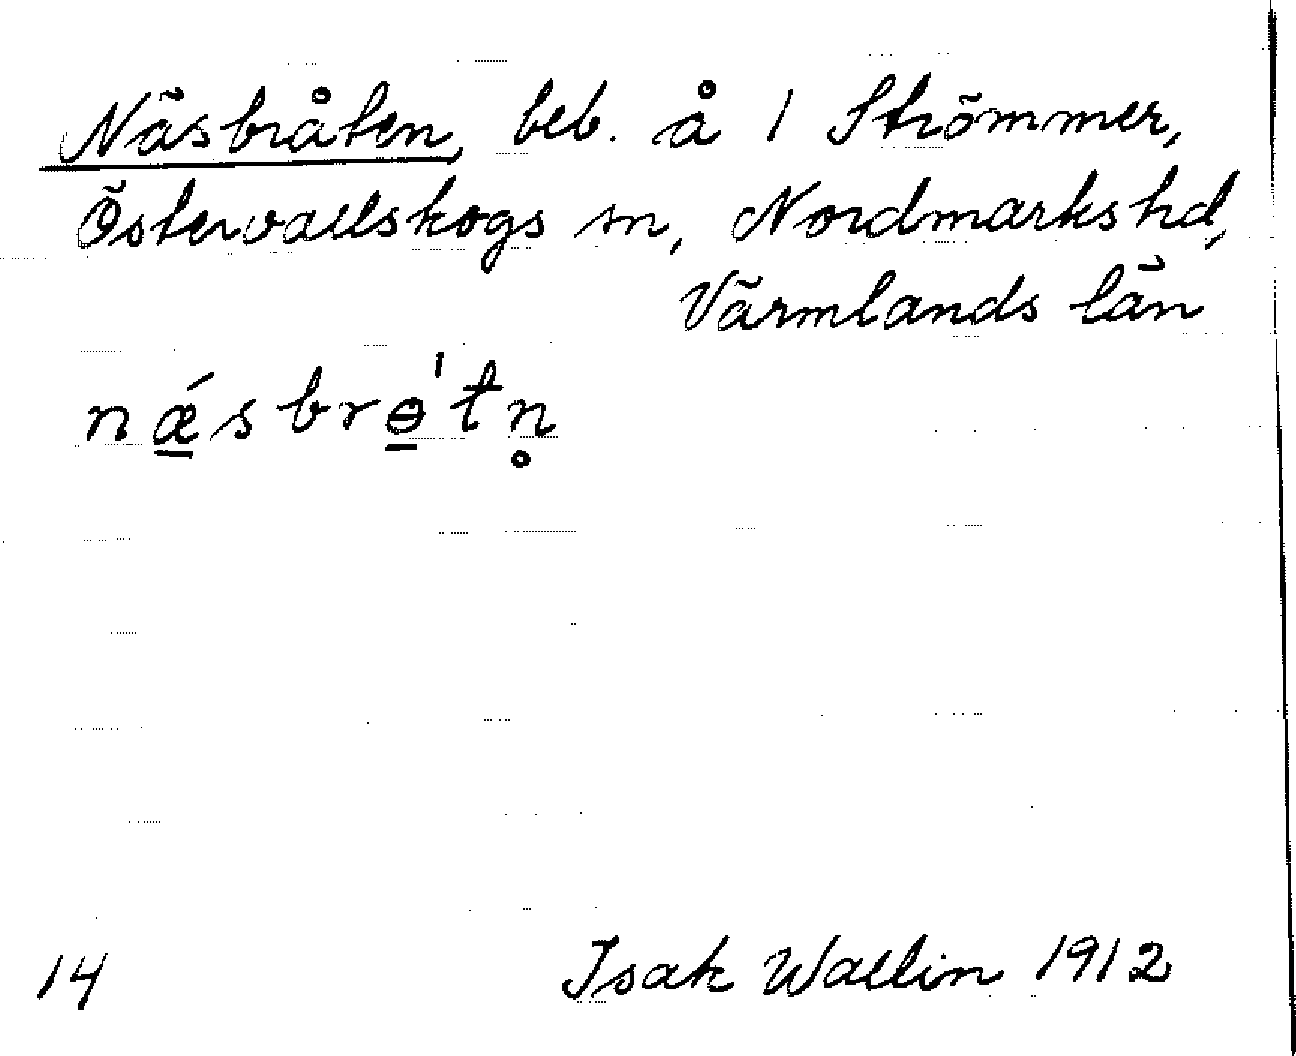 Näsbråten, beb. å 1 Strömmer,
Östervallskogs sn, Nordmarks hd,
Värmlands län
nǽ̠sbrɵ̠'tn̥
14
Isak Wallin 1912